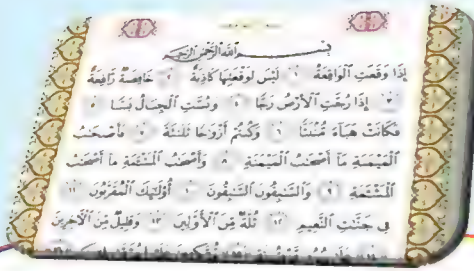 بسم الله الرحمن الرحيم
إِذَا وَقَعَتِ ٱلْوَاقِعَةُ ١ لَيْسَ لِوَقْعَتِهَا كَاذِبَةٌ ٢ خَافِضَةٌ رَّافِعَةٌ
٣ إِذَا رُجَّتِ ٱلْأَرْضُ رَجًّا ٤ وَبُسَّتِ ٱلْجِبَالُ بَسًّا ٥
فَكَانَتْ هَبَآءً مُّنۢبَثًّا ٦ وَكُنتُمْ أَزْوَٰجًا ثَلَٰثَةً ٧ فَأَصْحَٰبُ
ٱلْمَيْمَنَةِ مَآ أَصْحَٰبُ ٱلْمَيْمَنَةِ ٨ وَأَصْحَٰبُ ٱلْمَشْـَٔمَةِ مَآ أَصْحَٰبُ
ٱلْمَشْـَٔمَةِ ٩ وَٱلسَّٰبِقُونَ ٱلسَّٰبِقُونَ ١٠ أُو۟لَٰٓئِكَ ٱلْمُقَرَّبُونَ ١١
فِى جَنَّٰتِ ٱلنَّعِيمِ ١٢ ثُلَّةٌ مِّنَ ٱلْأَوَّلِينَ ١٣ وَقَلِيلٌ مِّنَ ٱلْأَخِرِينَ